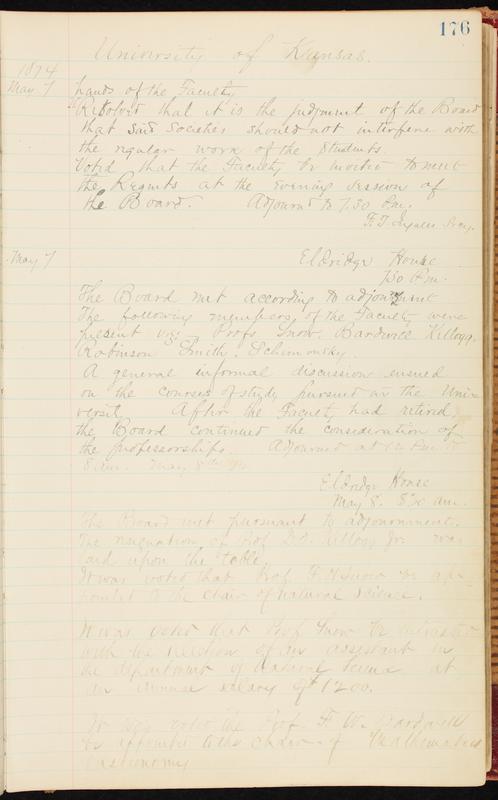 176
University of Kansas.
1874
May 7 hands of the Faculty
Resolved that it is the judgment of the Board
that said Societies should not interfere with
the regular work of the students.
Voted that the Faculty be invited to meet
the Regents at the evening session of
the Board. Adjourned to 7.30 P.m.
F. T. Ingalls Secy.
May 7 Eldridge House
7.30 P.m.
The Board met according to adjournment
The following members of the Faculty were
present viz: Profs Snow, Bardwell Kellogg,
Robinson Smith, Schimonsky.
A general informal discussion ensued
on the courses of study pursued in the Univ-
ersity After the Faculty had retired
the Board continued the consideration of
the professorships. Adjourned at 12 P.m. to
8 a.m. May 8th
Eldridge House
May 8. 8 a.m.
The Board met pursuant to adjournment.
The resignation of Prof. Kellogg Jr. was
laid upon the table.
It was voted that Prof. F. H. Snow be ap-
pointed to the chair of Natural Science.
It was voted that Prof Snow be intrusted
with the selection of an assistant in
the department of Natural Science at
an annual salary of $1200.
It was voted that Prof F. W. Bardwell
be appointed to the chair of Mathematics
& Astronomy